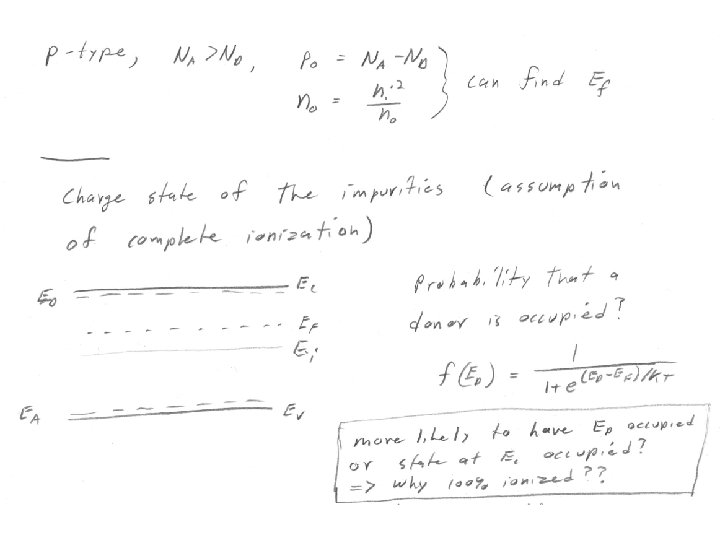 p-type, N_A > N_D, p_o = N_A - N_D } can find E_f
n_o = n_i^2 / n_o
Charge state of the impurities (assumption
of complete ionization)
E_D E_c
E_F
E_i
E_A E_v
Probability that a
donor is occupied?
f(E_D) = 1 / 1+e^(E_D-E_F)/KT
more likely to have E_D occupied
or state at E_c occupied?
=> why 100% ionized??